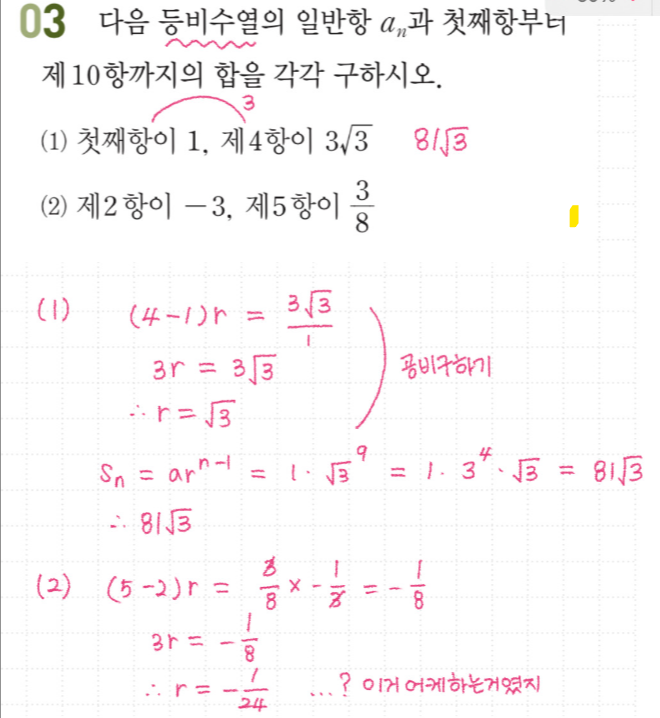 03 다음 등비수열의 일반항 aₙ과 첫째항부터
제10항까지의 합을 각각 구하시오.
3
(1) 첫째항이 1, 제4항이 3√3 81√3
(2) 제2항이 -3, 제5항이 3/8
(1) (4-1)r = 3√3/1
3r = 3√3
공비구하기
∴ r = √3
Sₙ = arⁿ⁻¹ = 1·√3⁹ = 1·3⁴·√3 = 81√3
∴ 81√3
(2) (5-2)r = 3/8 × -1/3 = -1/8
3r = -1/8
∴ r = -1/24 ...? 이거 어케하는거였지